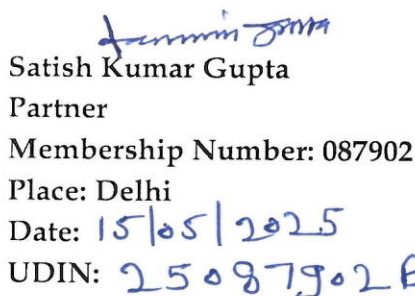 Satish Kumar Gupta
Partner
Membership Number: 087902
Place: Delhi
Date: 15/05/2025
UDIN: 25087902